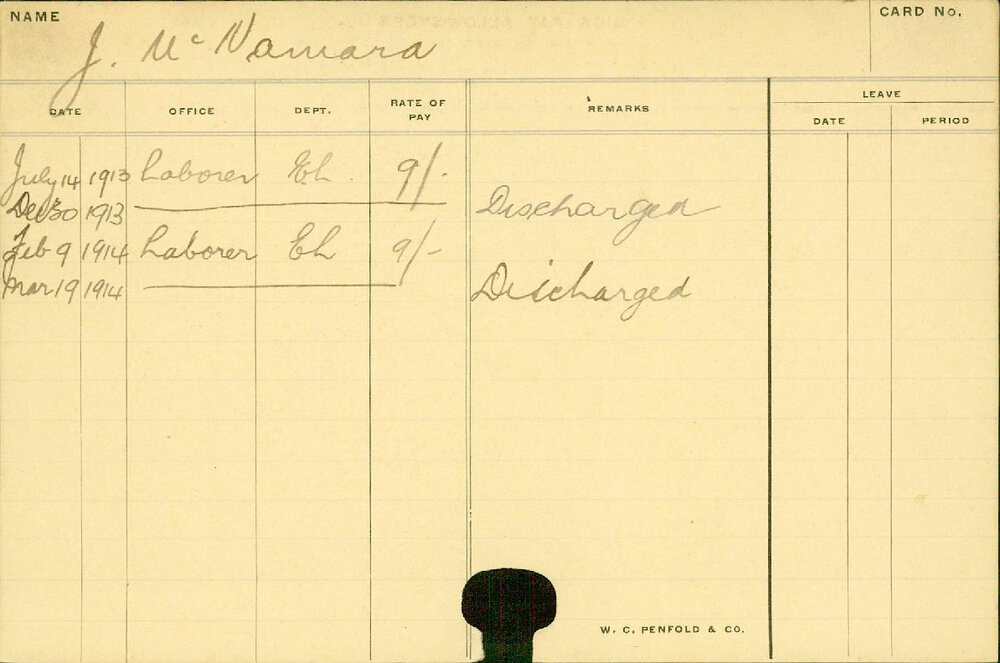 NAME
CARD No.
J. McNamara
DATE OFFICE DEPT. RATE OF PAY REMARKS LEAVE
DATE PERIOD
July 14 1913 Laborer Eh. 9/-
Dec 30 1913 Discharged
Feb 9 1914 Laborer Eh 9/-
Mar 19 1914 Discharged
W. C. PENFOLD & CO.